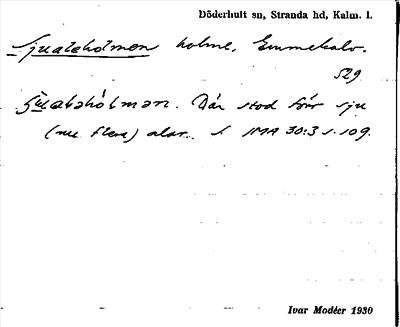 Döderhult sn, Stranda hd, Kalm. l.
Sjualeholmen holme, Emmekalv.
529
ʃu̇alahòlman. Där stod förr sju
(nu flera) alar. 1 IMA 30:3 s. 109.
Ivar Modéer 1930